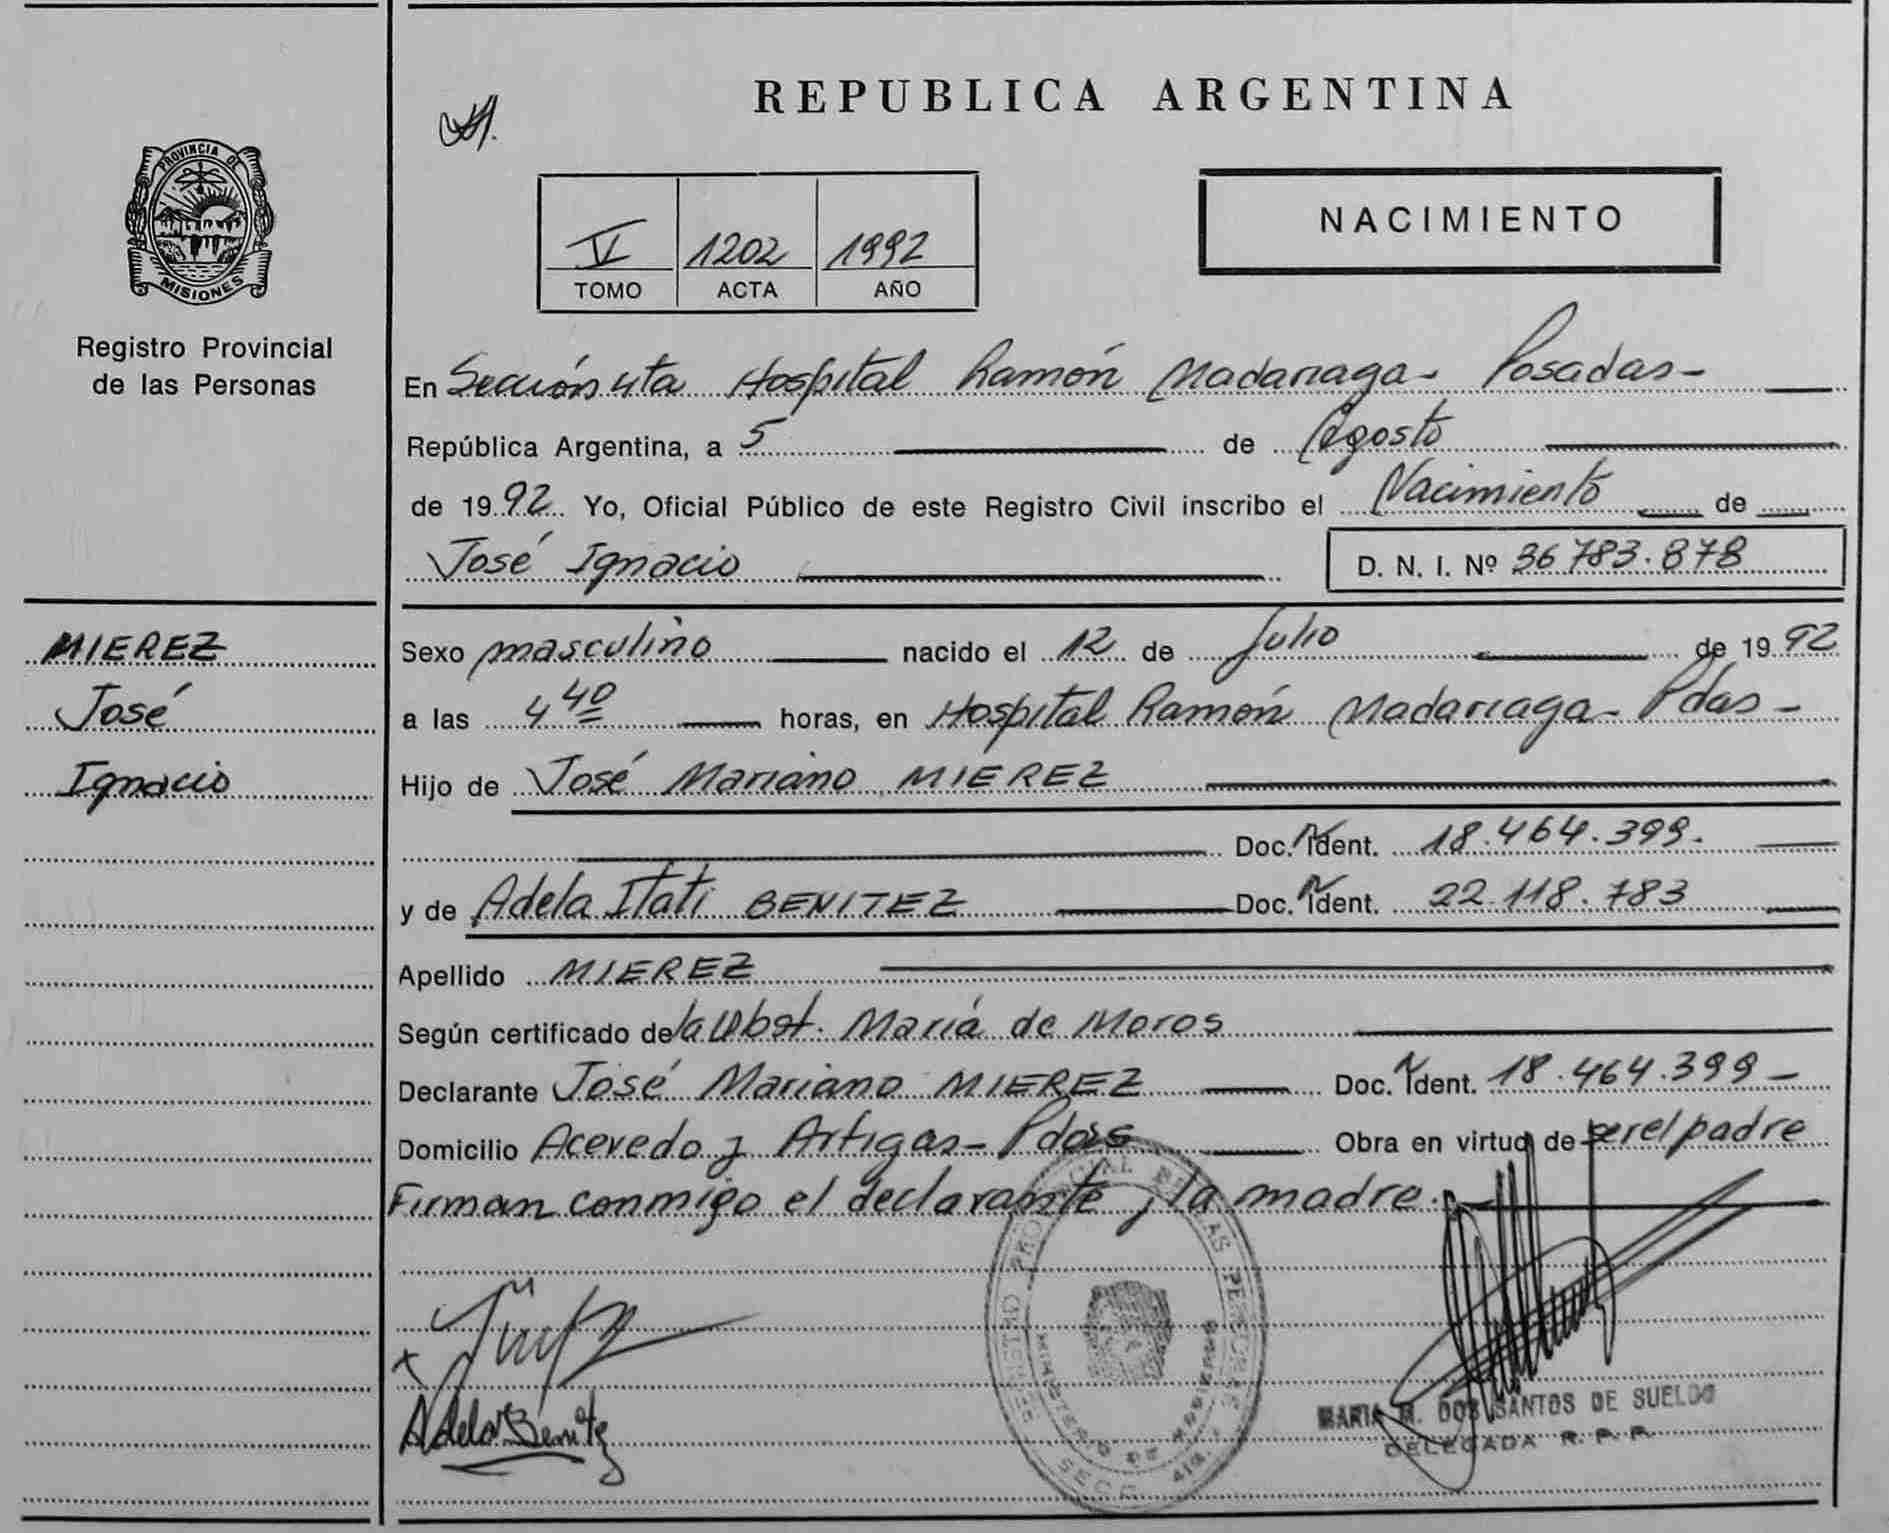 REPUBLICA ARGENTINA
PROVINCIA DE
MISIONES
Registro Provincial
de las Personas
NACIMIENTO
V 1202 1992
TOMO ACTA AÑO
En Sección 4ta Hospital Ramón Madariaga - Posadas -
República Argentina, a 5 de Agosto
de 1992 Yo, Oficial Público de este Registro Civil inscribo el Nacimiento de
José Ignacio D. N. I. Nº 36.783.878
MIEREZ
José
Ignacio
Sexo masculino nacido el 12 de Julio de 1992
a las 4 40 horas, en Hospital Ramón Madariaga - Pdas -
Hijo de José Mariano MIEREZ
Doc. Ident. 18.464.399.
y de Adela Itati BENITEZ Doc. Ident. 22.118.783
Apellido MIEREZ
Según certificado de la Obst. María de Moros
Declarante José Mariano MIEREZ Doc. Ident. 18.464.399 -
Domicilio Acevedo y Artigas - Pdas Obra en virtud de ser el padre
Firman conmigo el declarante y la madre.
Adela Benitez
MARIA M. DOS SANTOS DE SUELDO
DELEGADA R. P. P.
MINISTERIO DE GOBIERNO